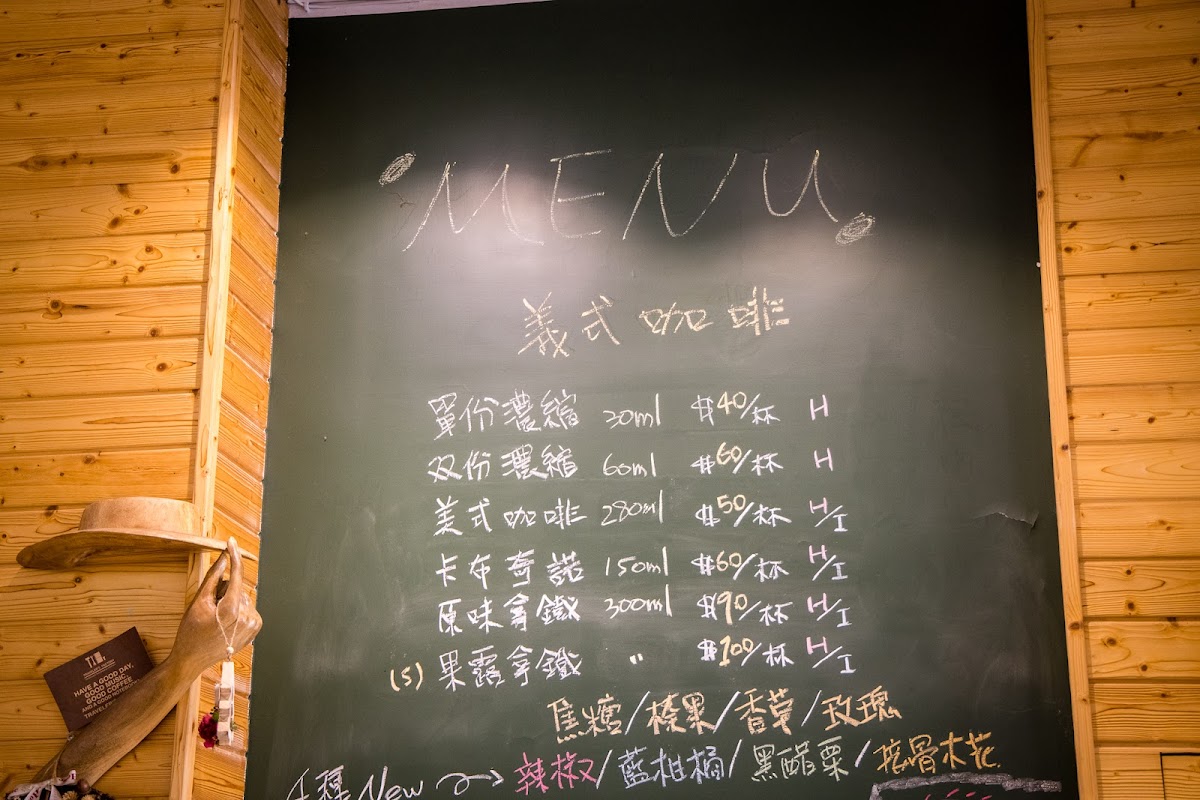 MENU
義式咖啡
單份濃縮 30ml $40/杯 H
双份濃縮 60ml $60/杯 H
美式咖啡 280ml $50/杯 H/I
卡布奇諾 150ml $60/杯 H/I
原味拿鐵 300ml $90/杯 H/I
(5) 果露拿鐵 〃 $100/杯 H/I
焦糖/榛果/香草/玫瑰
4種New → 辣椒/藍柑橘/黑醋栗/接骨木花
HAVE A GOOD DAY,
GOOD MUSIC
GOOD COFFEE
AND A GOOD NOTEBOOK